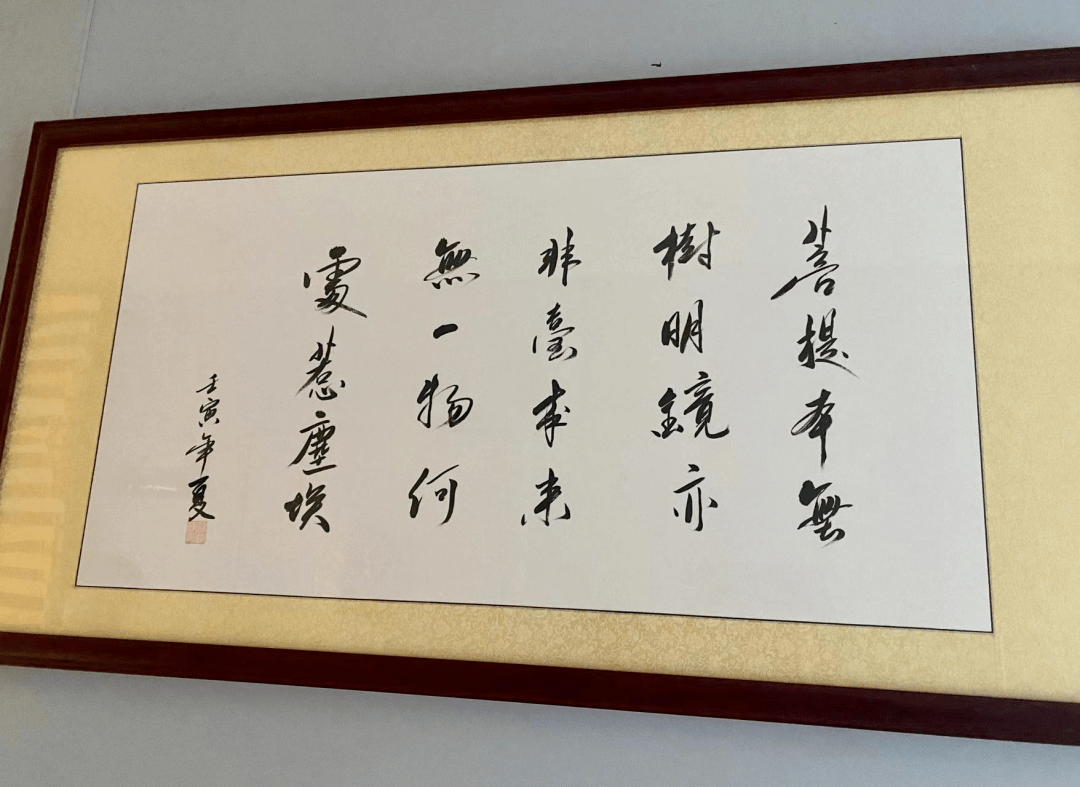 菩提本無
樹明鏡亦
非臺本来
無一物何
處惹塵埃
壬寅年夏